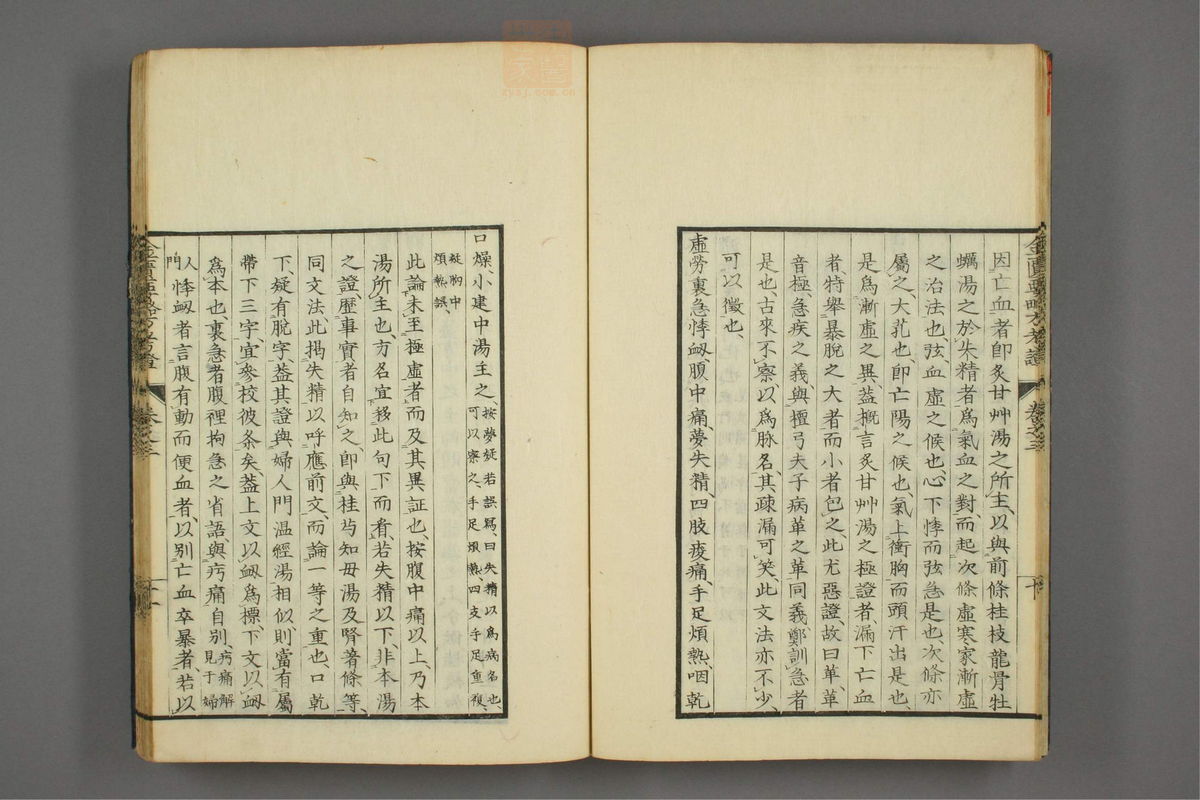 因亡血者卽炙甘艸湯之所主、以與前條桂枝龍骨牡
蠣湯之於失精者爲氣血之對、而起次條虛寒家漸虛
之治法也、弦血虛之候也、心下悸而弦急是也、次條亦
屬之、大芤也、卽亡陽之候也、氣上衝胸而頭汗出是也、
是爲漸虛之異、蓋概言炙甘艸湯之極證者漏下亡血
者、特舉暴脫之大者、而小者包之、此尤惡證、故曰革、革
音極、急疾之義、與檀弓夫子病革之革同義、鄭訓急者
是也、古來不察、以爲脉名、其疎漏可笑、此文法亦不少、
可以徵也、
虛勞裏急悸衂、腹中痛、夢失精、四肢痠痛、手足煩熱、咽乾
金匱要略方考證 卷之三 十
口燥、小建中湯主之、按夢疑若誤寫、曰失精以爲病名也、
可以察之、手足煩熱、四支手足重複、
疑胸中
煩熱誤、
此論未至極虛者、而及其異証也、按腹中痛以上、乃本
湯所主也、方名宜移此句下而看、若失精以下、非本湯
之證、歷事實者自知之、卽與桂芍知母湯及腎著條等、
同文法、此揭失精以呼應前文、而論一等之重也、口乾
下、疑有脫字、蓋其證與婦人門温經湯相似、則當有屬
帶下三字、宜參校彼条矣、蓋上文以衂爲標、下文以衂
爲本也、裏急者腹裡拘急之省語、與㽲痛自別、㽲痛解
見于婦
人
門
悸衂者言腹有動而便血者、以別亡血卒暴者、若以
金匱要略方考證 卷之三 十一